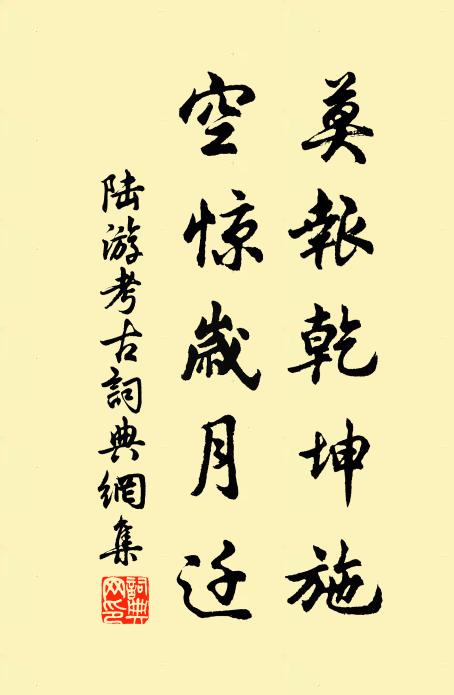 莫報乾坤施
空惊歲月迁
陆游考古詞典網集
詞典
网印